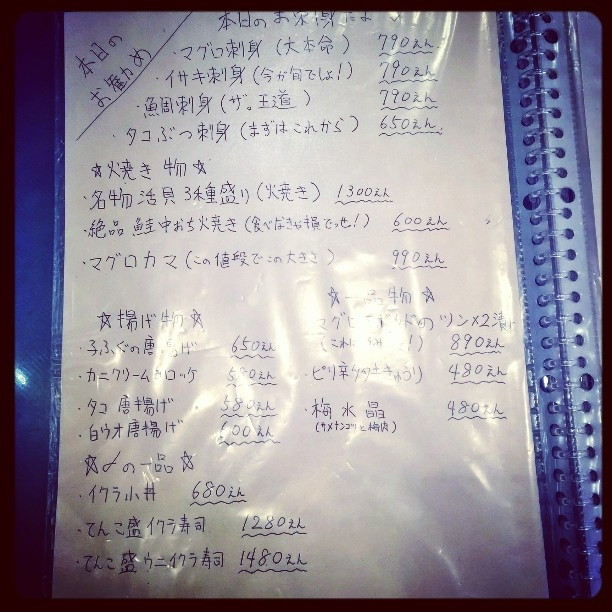 本日の
お薦め
本日のお刺身
・マグロ刺身(大本命) 790えん
・イサキ刺身(今が旬でしょ!) 790えん
・魚周刺身(ザ。王道) 790えん
・タコぶつ刺身(まずはこれから) 650えん
☆火焼き物☆
・名物活貝3種盛り(火焼き) 1300えん
・絶品鮭中おち火焼き(食べなきゃ損でっせ!) 600えん
・マグロカマ(この値段でこの大きさ) 990えん
☆揚げ物☆
・子ふぐの唐揚げ 650えん
・カニクリームコロッケ 580えん
・タコ唐揚げ 580えん
・白ウオ唐揚げ 600えん
☆一品物☆
のツン×2漬
890えん
・ピリ辛タタキきゅうり 480えん
・梅水晶 480えん
(サメナンコツと梅肉)
☆〆の一品☆
・イクラ小丼 680えん
・てんこ盛イクラ寿司 1280えん
・てんこ盛ウニイクラ寿司 1480えん